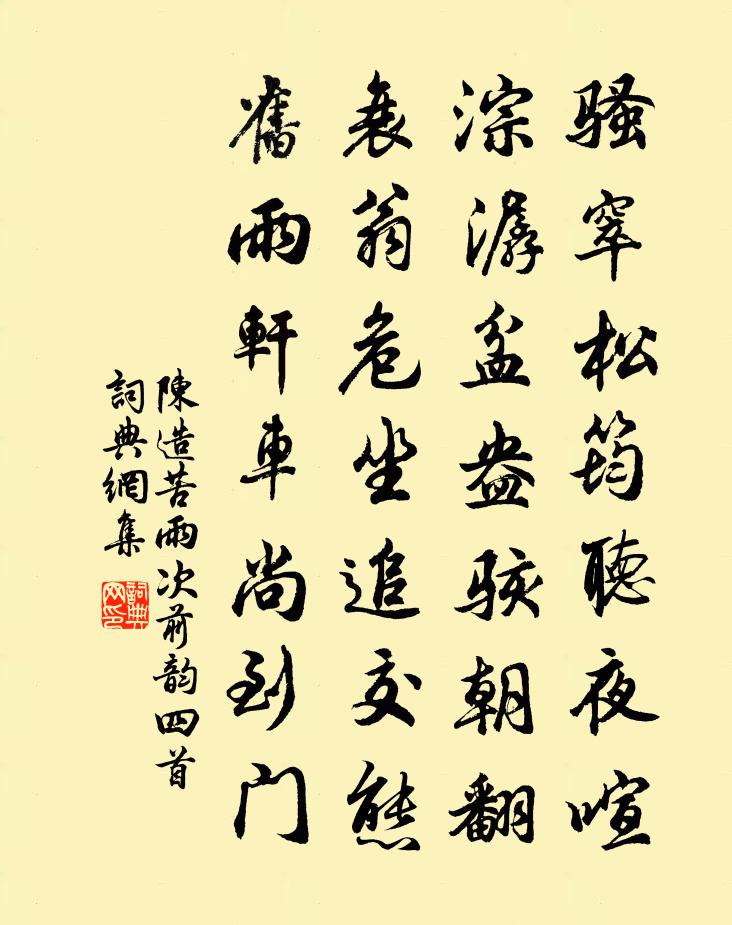 骚窣松筠聽夜喧
淙潺盆盎駭朝翻
衰翁危坐追交態
舊雨軒車尚到门
陳造苦雨次前韵四首
詞典網集
詞典
网印